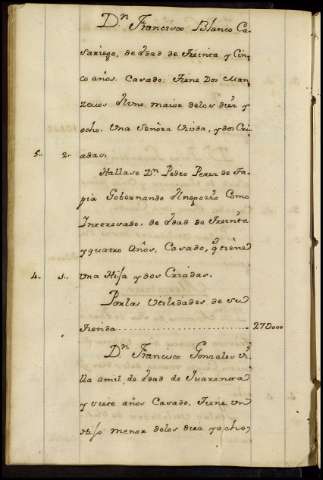 Dn. Francisco Blanco Ca-
sariego, de Edad de treinta y Cin
co años. Casado. tiene Dos Man
zevos Uno maior delos diez y
ocho. Una Señora Viuda, y dos Cri
5. 2. adas.
Hallase Dn. Pedro Perez de Ta
pia Gobernando
Como
Interesado. de Edad de treinta
y quatro Años, Casado, q. tiene
4. 1. Una Hija y dos Criadas.
Por las Utilidades de su
tienda 27000
Dn. Francisco Gonzales Vi
lla amil, de Edad de Quarenta
y siete años Casado. tiene un
Hijo menor delos diez y ocho,